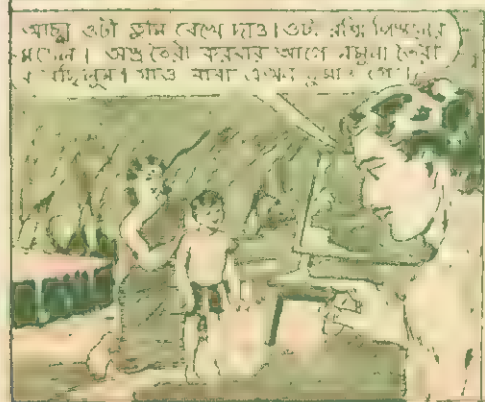 আচ্ছা ওটা তুমি রেখে দাও। ওটা রশ্মি পিস্তলের
মডেল। অস্ত্র তৈরী করবার আগে নমুনা তৈরী
যাও বাবা এখন ঘুমাও গে।